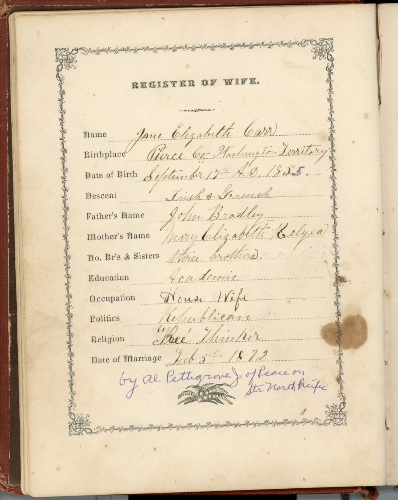 REGISTER OF WIFE.
Name Jane Elizabeth Carr
Birthplace Pierce Co. Washington Territory
Date of Birth September 17th A.D. 1855.
Descent Irish & French
Father's Name John Bradley
Mother's Name Mary Elizabeth Relyea
No. Br's & Sisters Three brothers.
Education Academic
Occupation House Wife
Politics Republican
Religion Free Thinker
Date of Marriage Feb 5th 1872
by Al Pettigrove J of Peace on
Str North Pacific